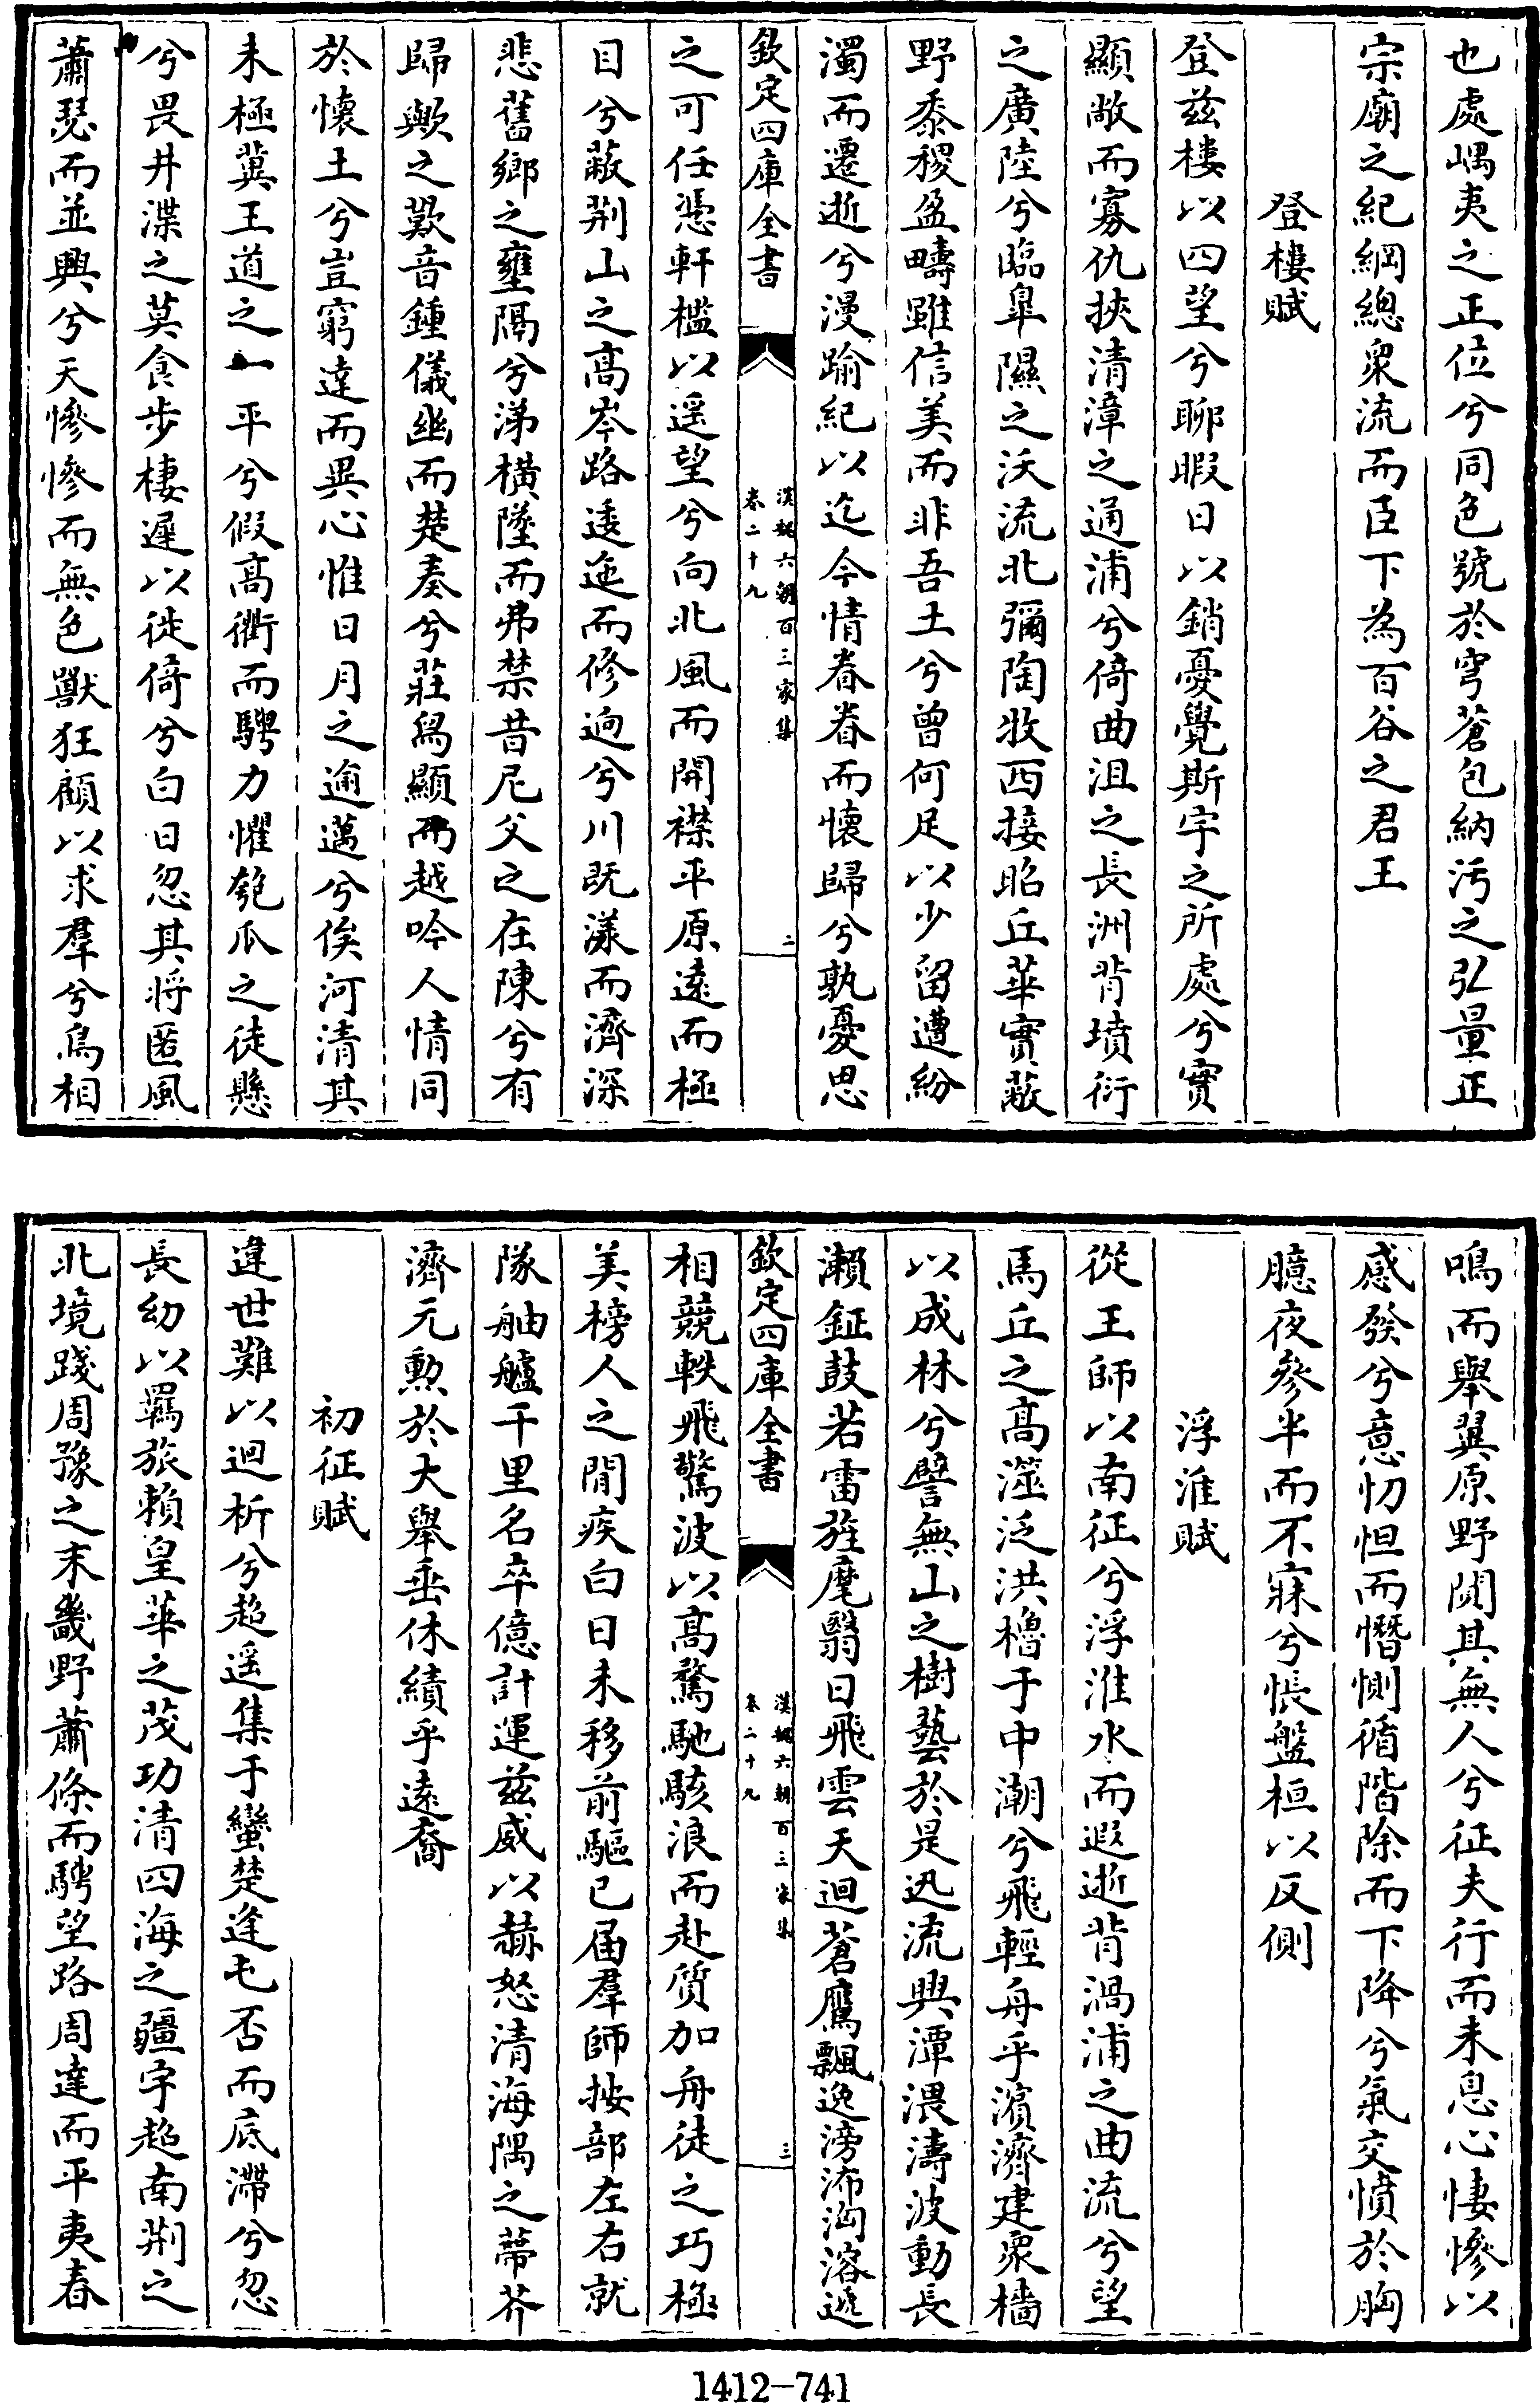 也處嵎夷之正位兮同色號於穹蒼包納污之弘量正
宗廟之紀綱總衆流而臣下為百谷之君王
登樓賦
登兹樓以四望兮聊暇日以銷憂覽斯宇之所處兮實
顯敞而寡仇挾清漳之通浦兮倚曲沮之長洲背墳衍
之廣陸兮臨臯隰之沃流北彌陶牧西接昭丘華實蔽
野黍稷盈疇雖信美而非吾土兮曾何足以少留遭紛
濁而遷逝兮漫踰紀以迄今情眷眷而懷歸兮孰憂思
欽定四庫全書
漢魏六朝百三家集
卷二十九
二
之可任憑軒檻以遥望兮向北風而開襟平原遠而極
目兮蔽荆山之高岑路逶迤而修迥兮川既漾而濟深
悲舊鄉之壅隔兮涕横墜而弗禁昔尼父之在陳兮有
歸歟之歎音鍾儀幽而楚奏兮莊舄顯而越吟人情同
於懷土兮豈窮達而異心惟日月之逾邁兮俟河清其
未極冀王道之一平兮假高衢而騁力懼匏瓜之徒懸
兮畏井渫之莫食步棲遲以徙倚兮白日忽其将匿風
蕭瑟而並興兮天慘慘而無色獸狂顧以求羣兮鳥相
鳴而舉翼原野闃其無人兮征夫行而未息心悽慘以
感發兮意忉怛而憯惻循階除而下降兮氣交憤於胸
臆夜參半而不寐兮悵盤桓以反側
浮淮賦
從王師以南征兮浮淮水而遐逝背渦浦之曲流兮望
馬丘之高澨泛洪櫓于中潮兮飛輕舟乎濵濟建衆檣
以成林兮譬無山之樹藝於是迅流興潭渨濤波動長
瀬鉦鼓若雷旌麾翳日飛雲天迴蒼鷹飄逸滂沛洶溶遞
欽定四庫全書
漢魏六朝百三家集
卷二十九
三
相競軼飛驚波以高騖馳駭浪而赴質加舟徒之巧極
美榜人之閒疾白日未移前驅已届羣師按部左右就
隊舳艫千里名卒億計運兹威以赫怒清海隅之蔕芥
濟元勲於大舉垂休績乎遠裔
初征賦
違世難以迴析兮超遥集于蠻楚逢屯否而底滯兮忽
長幼以羈旅賴皇華之茂功清四海之疆宇超南荆之
北境踐周豫之末畿野蕭條而騁望路周達而平夷春
1412-741